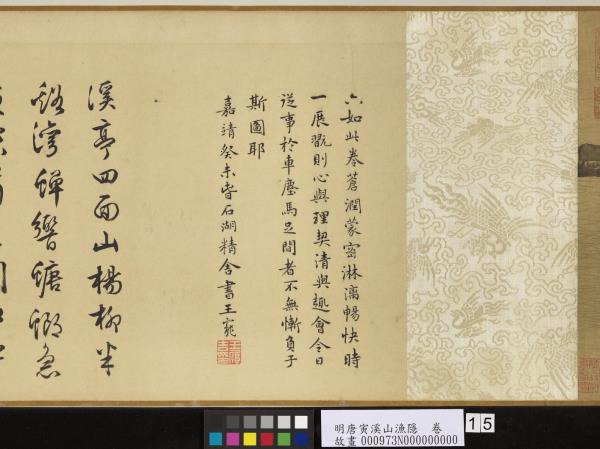 六如此卷蒼潤蒙密淋漓暢快時
一展翫則心與理契清與趣會今日
從事於車塵馬足間者不無慚負于
斯圖耶
嘉靖癸未皆石湖精舍書王寵
溪亭四面山楊柳半
谿灣蟬響螗螂急
明唐寅溪山漁隱　卷
故畫000973N000000000
15